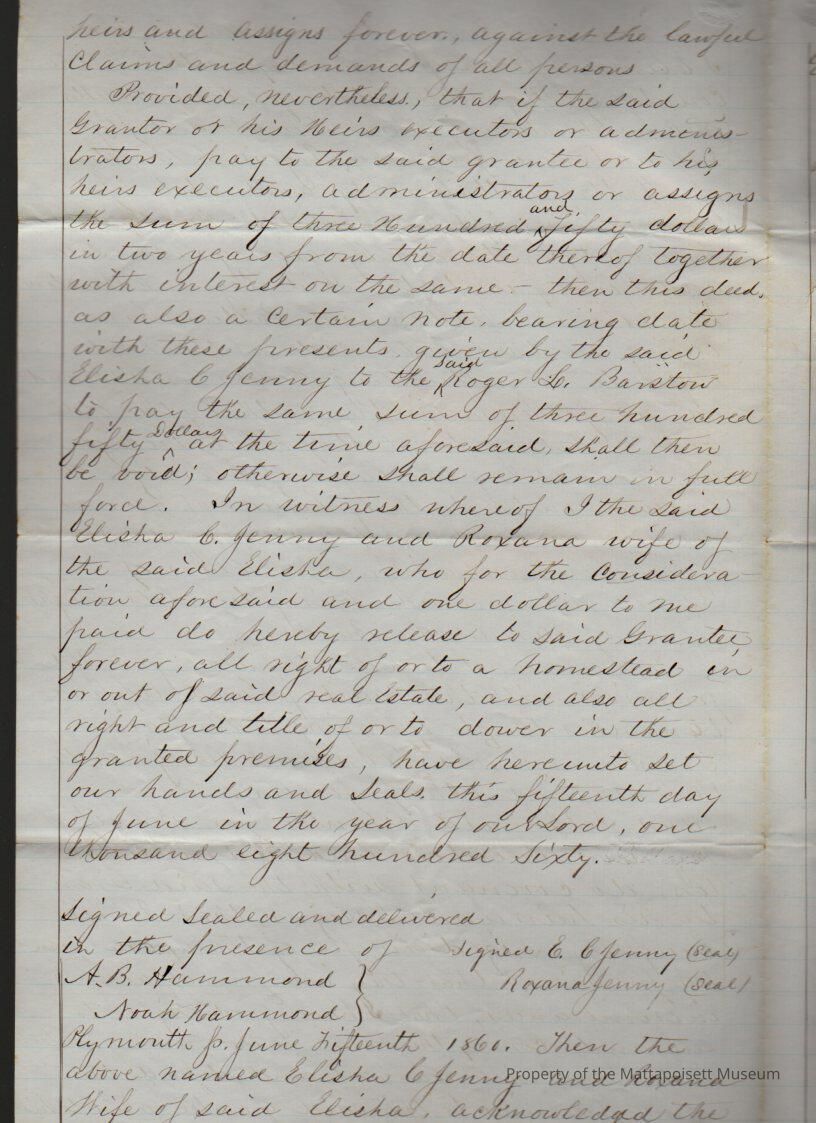 heirs and assigns forever, against the lawful
Claims and demands of all persons
Provided, nevertheless, that if the said
Grantor or his Heirs executors or adminis-
trators, pay to the said grantee or to his
heirs executors, administrators or assigns
the sum of three Hundred and Fifty dollars
in two years from the date thereof together
with interest on the same - then this deed,
as also a Certain note, bearing date
with these presents given by the said
Elisha C Jenny to the said Roger L. Barstow
to pay the same sum of three hundred
fifty Dollars at the time aforesaid, shall then
be void; otherwise shall remain in full
force. In witness whereof I the said
Elisha C. Jenny and Roxana wife of
the said Elisha, who for the Considera-
tion aforesaid and one dollar to me
paid do hereby release to said Grantee
forever, all right of or to a homestead in
or out of said real Estate, and also all
right and title of or to dower in the
granted premises, have hereunto set
our hands and Seals this fifteenth day
of June in the year of our Lord, one
thousand eight hundred Sixty.
Signed Sealed and delivered
in the presence of Signed E. C Jenny (Seal)
A. B. Hammond Roxana Jenny (Seal)
Noah Hammond
Plymouth ss. June Fifteenth 1860. Then the
above named Elisha C Jenny and Roxana
Wife of said Elisha, acknowledged the
Property of the Mattapoisett Museum